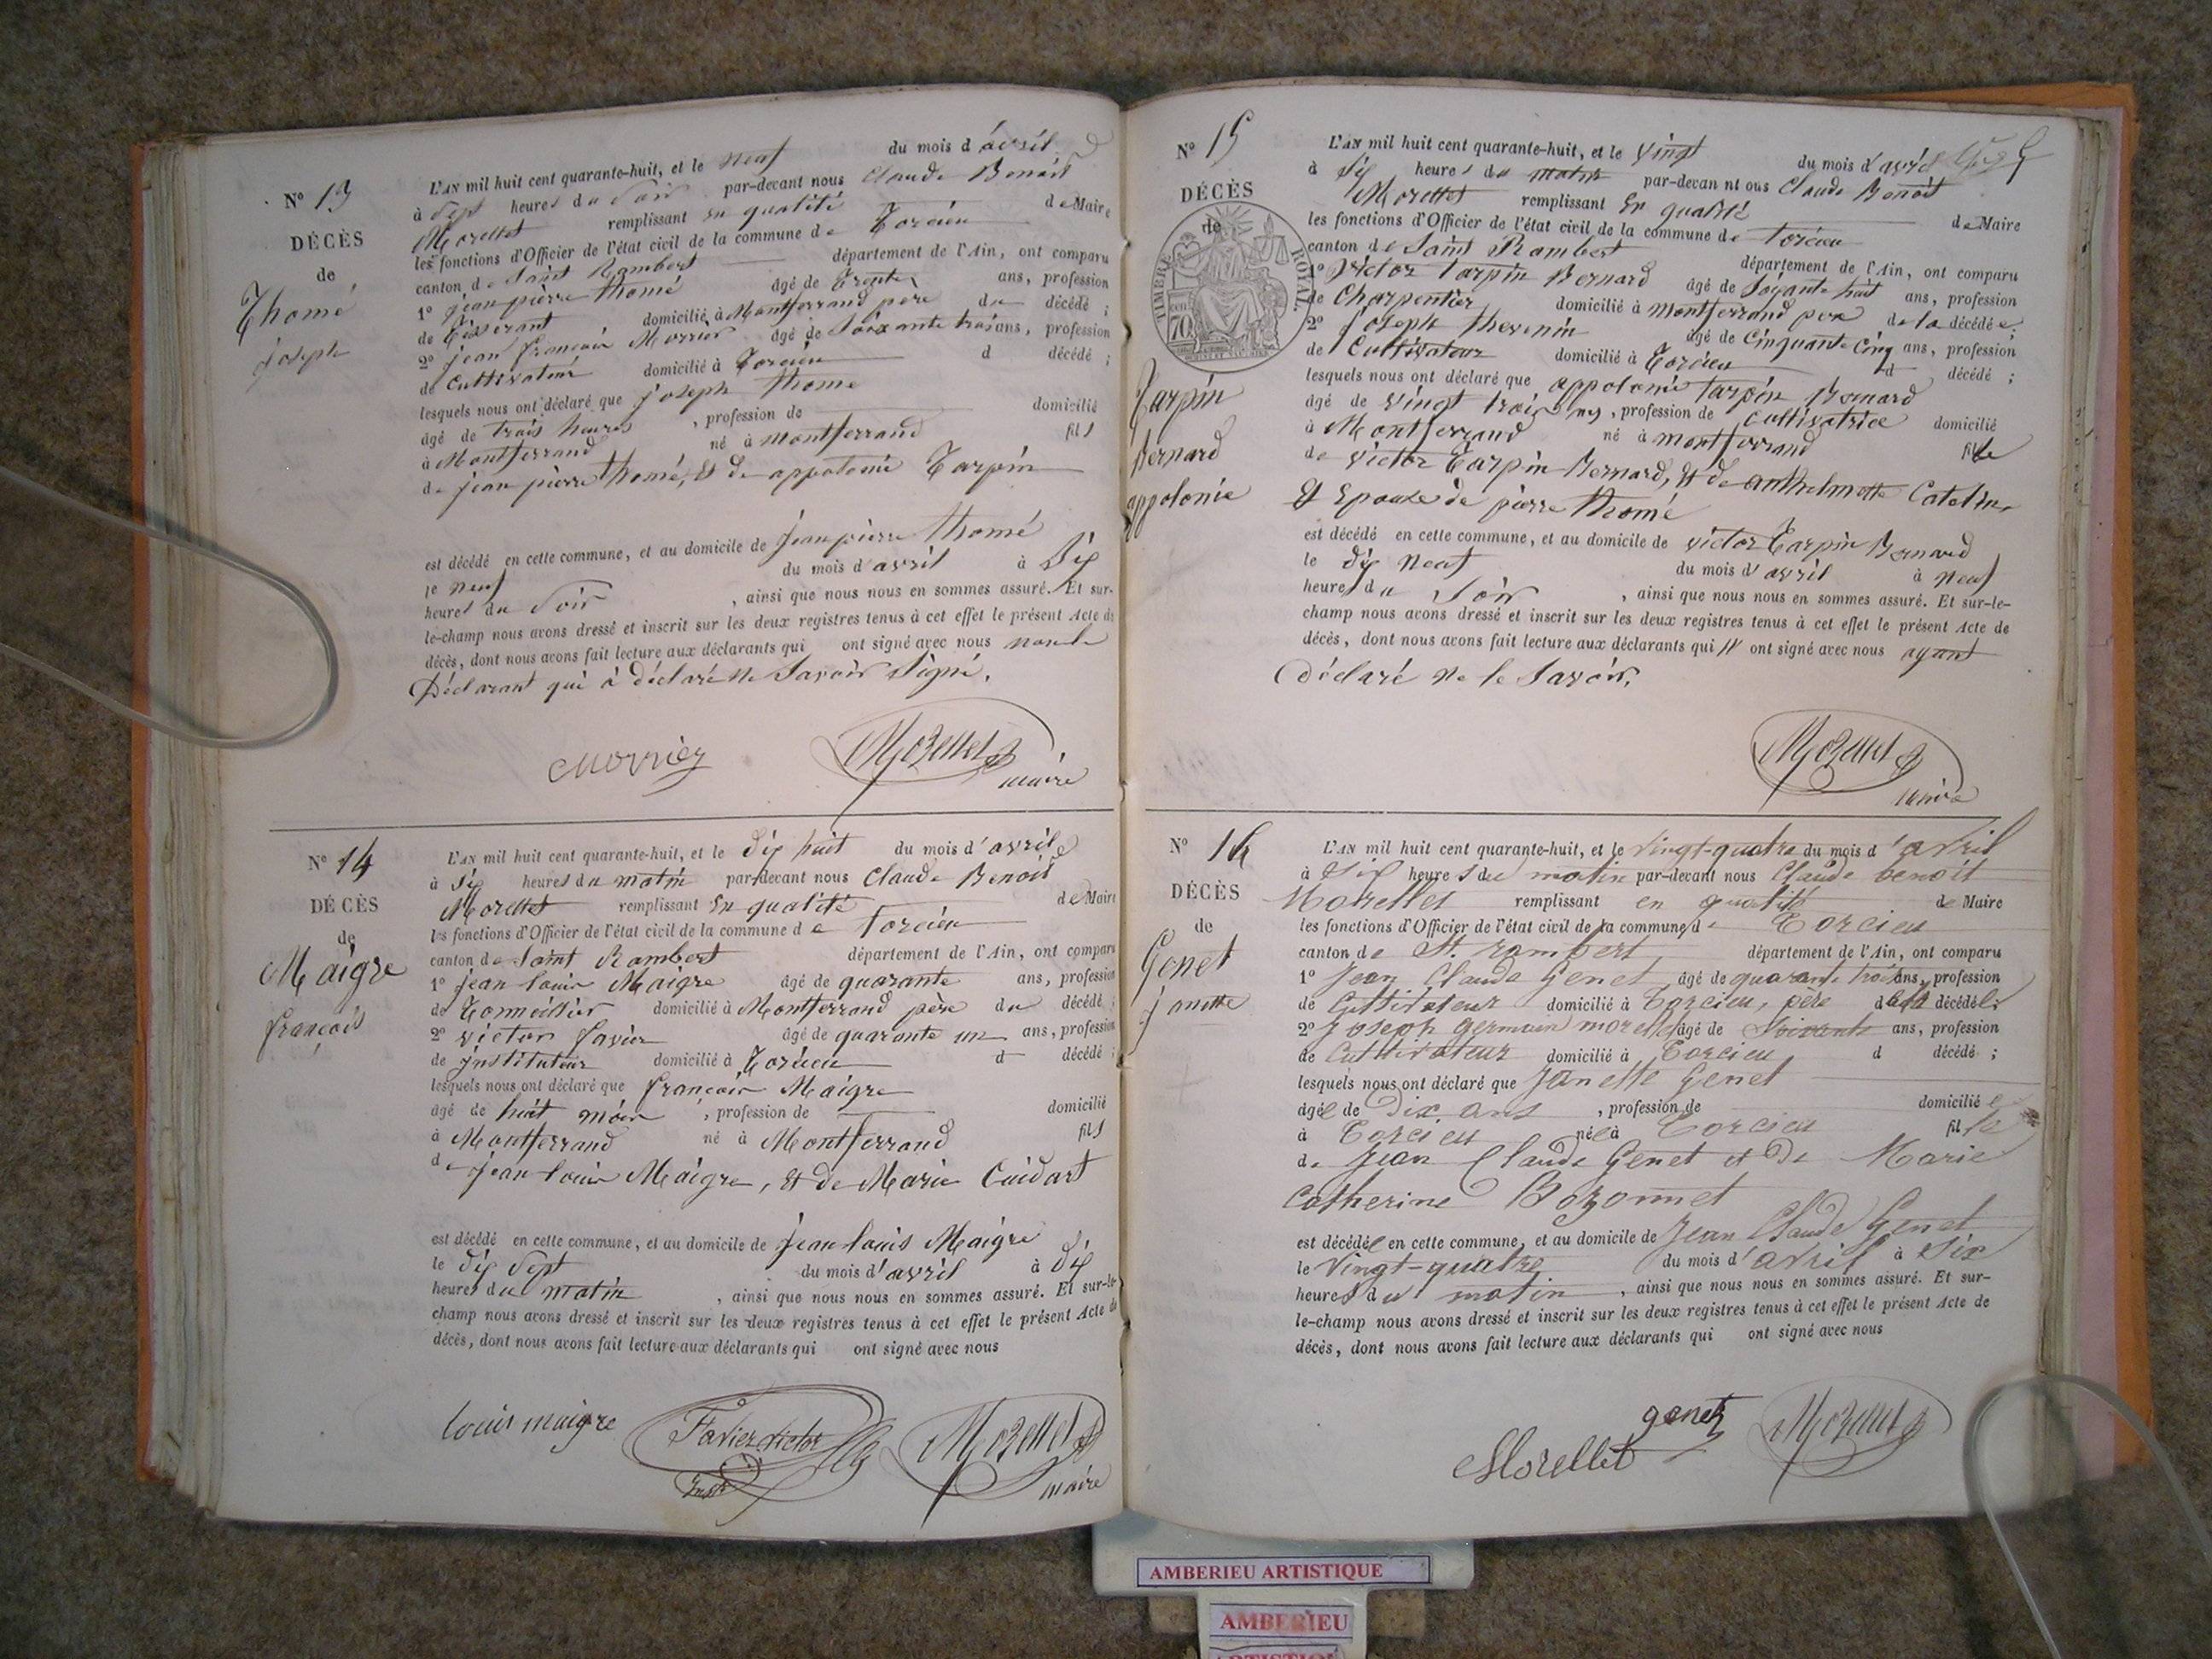 N° 13
DÉCÈS
de
Thomé
joseph
L'AN mil huit cent quarante-huit, et le neuf du mois d'avril
à Sept heures du Soir par-devant nous Claude Benoit
Morellet remplissant En qualité de Maire
les fonctions d'Officier de l'état civil de la commune de Torcieu
canton de Saint Rambert département de l'Ain, ont comparu
1° jean pierre thomé âgé de Trente ans, profession
de Tisserant domicilié à Montferrand pere du décédé ;
2° jean françois Morrier âgé de Soixante trois ans, profession
de Cultivateur domicilié à Torcieu d décédé ;
lesquels nous ont déclaré que joseph thomé
âgé de trois heures , profession de domicilié
à Montferrand né à montferrand fils
de jean pierre thomé, Et de appolonie Tarpin
est décédé en cette commune, et au domicile de jean pierre thomé
le neuf du mois d'avril à Six
heures du Soir , ainsi que nous nous en sommes assuré. Et sur-
le-champ nous avons dressé et inscrit sur les deux registres tenus à cet effet le présent Acte de
décès, dont nous avons fait lecture aux déclarants qui ont signé avec nous non le
Déclarant qui à déclaré ne Savoir Signé.
Morrier
Morellet
maire
N° 14
DÉCÈS
de
Maigre
françois
L'AN mil huit cent quarante-huit, et le dix huit du mois d'avril
à Six heures du matin par-devant nous Claude Benoit
Morellet remplissant En qualité de Maire
les fonctions d'Officier de l'état civil de la commune de Torcieu
canton de Saint Rambert département de l'Ain, ont comparu
1° jean louis Maigre âgé de quarante ans, profession
de Tonnellier domicilié à Montferrand père du décédé ;
2° victor favier âgé de quarante un ans, profession
de jnstituteur domicilié à Torcieu d décédé ;
lesquels nous ont déclaré que françois Maigre
âgé de huit mois , profession de domicilié
à Montferrand né à Montferrand fils
de jean louis Maigre, Et de Marie Cuidart
est décédé en cette commune, et au domicile de jean louis Maigre
le dix Sept du mois d'avril à dix
heures du matin , ainsi que nous nous en sommes assuré. Et sur-le-
champ nous avons dressé et inscrit sur les deux registres tenus à cet effet le présent Acte de
décès, dont nous avons fait lecture aux déclarants qui ont signé avec nous
louis maigre
Favier victor
Inst
Morellet
maire
N° 15
DÉCÈS
de
TIMBRE ROYAL
70
Tarpin
Bernard
appolonie
L'AN mil huit cent quarante-huit, et le vingt du mois d'avril
à Six heures du matin par-devan nt ous Claude Benoit
Morellet remplissant En qualité de Maire
les fonctions d'Officier de l'état civil de la commune de torcieu
canton de Saint Rambert département de l'Ain, ont comparu
1° Victor tarpin Bernard âgé de Soyante huit ans, profession
de Charpentier domicilié à montferrand pere de la décédée ;
2° joseph thevenin âgé de Cinquante Cinq ans, profession
de Cultivateur domicilié à Torcieu d décédé ;
lesquels nous ont déclaré que appolonie tarpin Bernard
âgé de vingt trois ans , profession de Cultivatrice domicilié
à Montferrand né à montferrand fille
de victor Tarpin Bernard, Et de anthelmette Catelin
Et Epouze de pierre thomé
est décédé en cette commune, et au domicile de victor Tarpin Bernard
le dix neuf du mois d'avril à neuf
heures du Soir , ainsi que nous nous en sommes assuré. Et sur-le-
champ nous avons dressé et inscrit sur les deux registres tenus à cet effet le présent Acte de
décès, dont nous avons fait lecture aux déclarants qui n' ont signé avec nous ayant
déclaré ne le Savoir.
Morellet
maire
N° 16
DÉCÈS
de
Genet
janette
L'AN mil huit cent quarante-huit, et le vingt-quatre du mois d'avril
à Six heures du matin par-devant nous Claude benoit
Morellet remplissant en qualité de Maire
les fonctions d'Officier de l'état civil de la commune de Torcieu
canton de St. rambert département de l'Ain, ont comparu
1° Jean Claude Genet âgé de quarante trois ans, profession
de Cultivateur domicilié à Torcieu, père de la décédée ;
2° Joseph germain morellet âgé de Soixante ans, profession
de Cultivateur domicilié à Torcieu d décédé ;
lesquels nous ont déclaré que Janette Genet
âgée de Dix ans , profession de domiciliée
à Torcieu née à Torcieu fille
de Jean Claude Genet et De Marie
Catherine Bozonnet
est décédée en cette commune, et au domicile de Jean Claude Genet
le vingt-quatre du mois d'avril à Six
heures du matin , ainsi que nous nous en sommes assuré. Et sur-
le-champ nous avons dressé et inscrit sur les deux registres tenus à cet effet le présent Acte de
décès, dont nous avons fait lecture aux déclarants qui ont signé avec nous
genet
Morellet
Morellet
AMBERIEU ARTISTIQUE
AMBERIEU
ARTISTIQUE